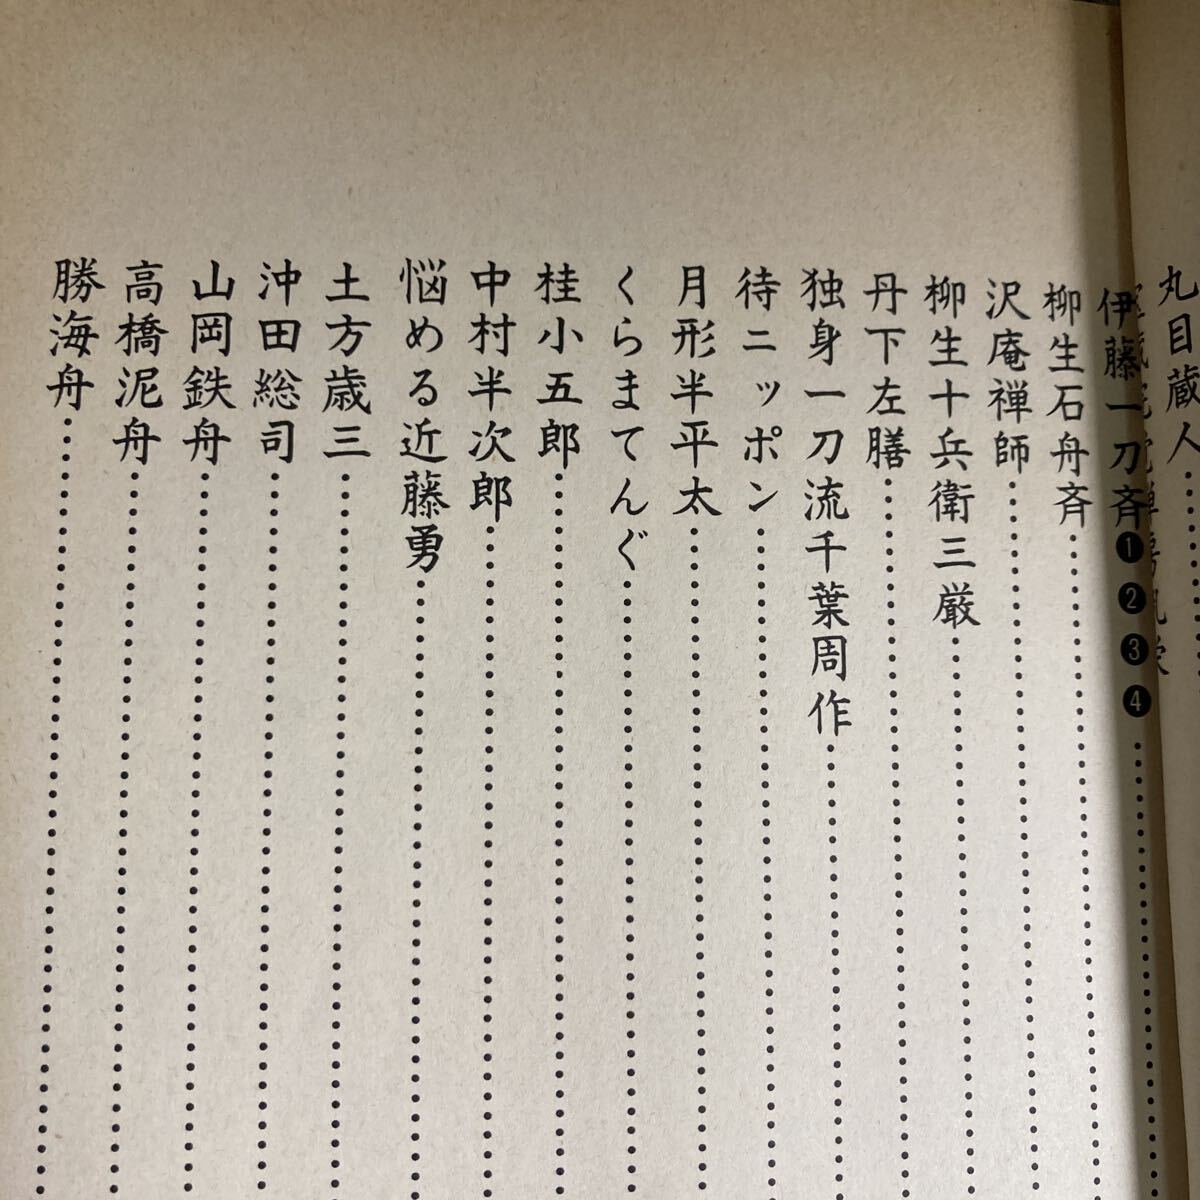 丸目蔵人
伊藤一刀斉❶❷❸❹
柳生石舟斉
沢庵禅師
柳生十兵衛三厳
丹下左膳
独身一刀流千葉周作
待ニッポン
月形半平太
くらまてんぐ
桂小五郎
中村半次郎
悩める近藤勇
土方歳三
沖田総司
山岡鉄舟
高橋泥舟
勝海舟